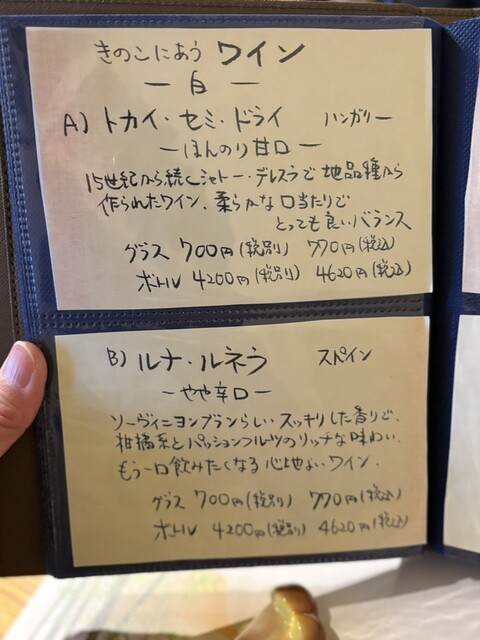 きのこにあう ワイン
— 白 —
A) トカイ・セミ・ドライ ハンガリー
— ほんのり甘口 —
15世紀から続くシャトー・デレスラで 地品種から
作られたワイン、柔らかな口当たりで
とっても良いバランス
グラス 700円(税別) 770円(税込)
ボトル 4200円(税別) 4620円(税込)
B) ルナ・ルネラ スペイン
— やや辛口 —
ソーヴィニヨンブランらしい スッキリした香りで、
柑橘系とパッションフルツのリッチな味わい。
もう一口飲みたくなる 心地よいワイン.
グラス 700円(税別) 770円(税込)
ボトル 4200円(税別) 4620円(税込)